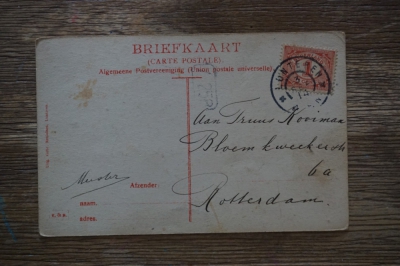 BRIEFKAART
(CARTE POSTALE)
Algemeene Postvereeniging (Union postale universelle)
LUNTEREN
Aan Truus Kooiman
Bloemkweekerstr
6a
Rotterdam.
Afzender:
naam.
adres.